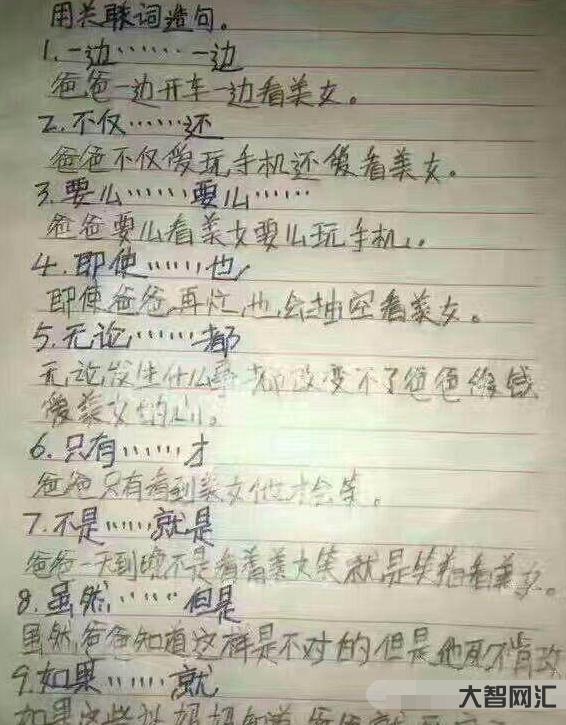 用关联词造句。
1.一边……一边
爸爸一边开车一边看美女。
2.不仅……还
爸爸不仅爱玩手机还爱看美女。
3.要么……要么……
爸爸要么看美女要么玩手机。
4.即使……也
即使爸爸再忙,也会抽空看美女。
5.无论……都
无论发生什么事都改变不了爸爸
爱美女的心。
6.只有……才
爸爸只有看到美女他才会笑。
7.不是……就是
爸爸一天到晚不是看着美女笑就是笑着看美女。
8.虽然……但是
虽然爸爸知道这样是不对的但是他死不肯改
9.如果……就
如果这些让妈妈知道
大智网汇